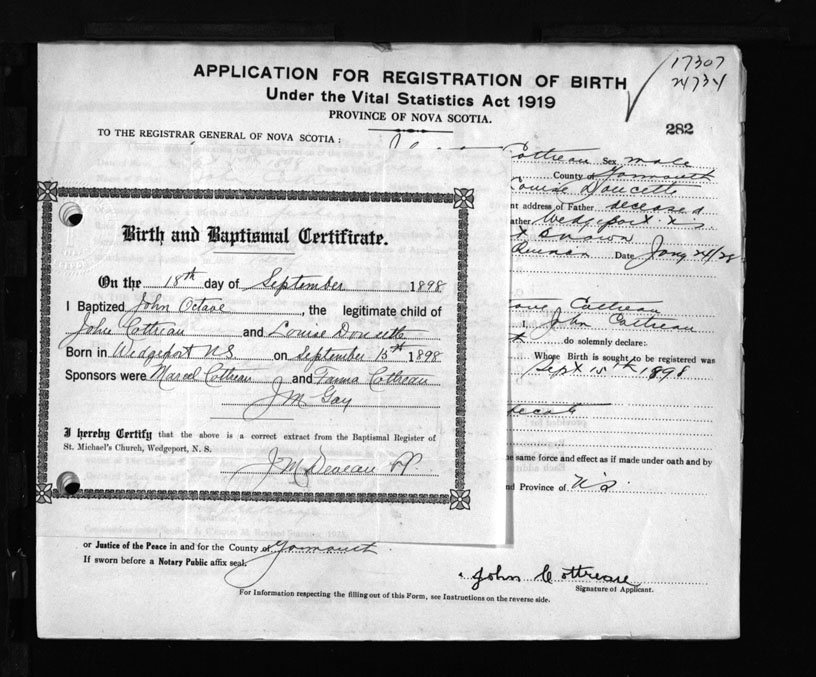 17307
24734
APPLICATION FOR REGISTRATION OF BIRTH
Under the Vital Statistics Act 1919
PROVINCE OF NOVA SCOTIA.
282
TO THE REGISTRAR GENERAL OF NOVA SCOTIA:
Cottreau Sex male
County of Yarmouth
Louise Doucette
nt address of Father deceased
ather Wedgeport N.S.
Date Jany 24/28
Birth and Baptismal Certificate.
On the 18th day of September 1898
I Baptized John Octave, the legitimate child of
John Cottreau and Louise Doucette
Born in Wedgeport NS on September 15th 1898
Sponsors were Marcel Cottreau and Cottreau
J M Gay
I hereby Certify that the above is a correct extract from the Baptismal Register of
St. Michael's Church, Wedgeport, N. S.
J M Deveau
Cottreau
I, John Cottreau
do solemnly declare:
Whose Birth is sought to be registered was
Sept 15th 1898
he same force and effect as if made under oath and by
nd Province of N S
or Justice of the Peace in and for the County of Yarmouth
If sworn before a Notary Public affix seal.
John Cottreau
Signature of Applicant.
For Information respecting the filling out of this Form, see Instructions on the reverse side.